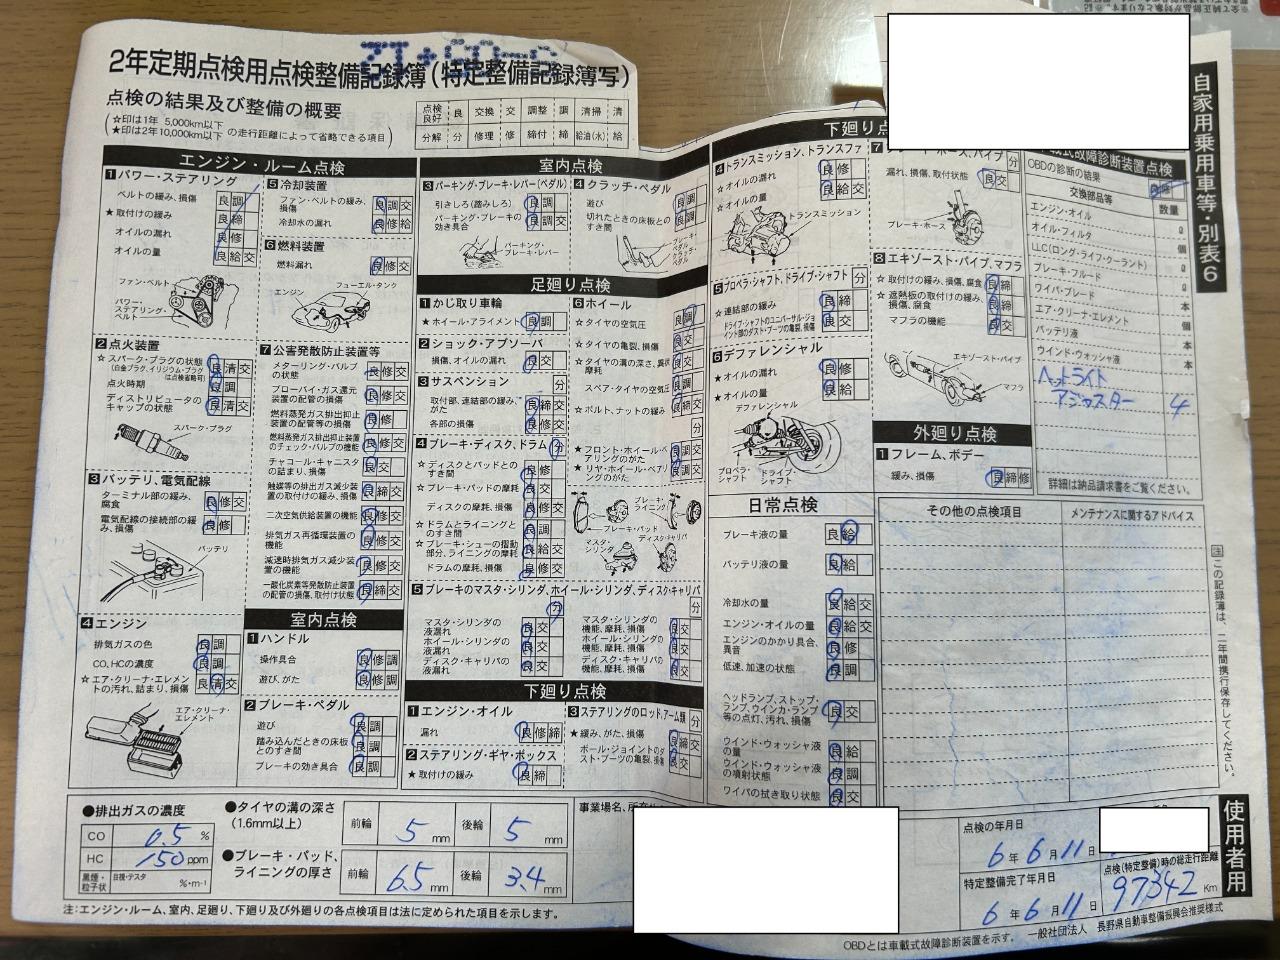 2年定期点検用点検整備記録簿(特定整備記録簿写)
点検の結果及び整備の概要
(☆印は1年 5,000km以下
★印は2年10,000km以下 の走行距離によって省略できる項目)
点検良好 良 交換 交 調整 調 清掃 清
分解 分 修理 修 締付 締 給油(水) 給
自家用乗用車等・別表6
エンジン・ルーム点検
1 パワー・ステアリング
ベルトの緩み、損傷 良 調
★取付けの緩み 良 締
オイルの漏れ 良 修
オイルの量 良 給 交
ファン・ベルト
パワー・ステアリング・ベルト
2 点火装置
☆スパーク・プラグの状態 良 清 交
(白金プラグ、イリジウム・プラグは点検省略可)
点火時期 良 調
ディストリビュータのキャップの状態 良 清 交
スパーク・プラグ
3 バッテリ、電気配線
ターミナル部の緩み、腐食 良 修 交
電気配線の接続部の緩み、損傷 良 修
バッテリ
4 エンジン
排気ガスの色 良 調
CO、HCの濃度 良 調
☆エア・クリーナ・エレメントの汚れ、詰まり、損傷 良 清 交
エア・クリーナ・エレメント
5 冷却装置
ファン・ベルトの緩み、損傷 良 調 交
冷却水の漏れ 良 修 給
6 燃料装置
燃料漏れ 良 修 交
エンジン
フューエル・タンク
7 公害発散防止装置等
メターリング・バルブの状態 良 修 交
ブローバイ・ガス還元装置の配管の損傷 良 修 交
燃料蒸発ガス排出抑止装置の配管等の損傷 良 修
燃料蒸発ガス排出抑止装置のチェック・バルブの機能 良 修 交
チャコール・キャニスタの詰まり、損傷 良 交
触媒等の排出ガス減少装置の取付けの緩み、損傷 良 締 交
二次空気供給装置の機能 良 修 交
排気ガス再循環装置の機能 良 修 交
減速時排気ガス減少装置の機能 良 修 交
一酸化炭素等発散防止装置の配管の損傷、取付け状態 良 締 交
室内点検
1 ハンドル
操作具合 良 修 調
遊び、がた 良 修 調
2 ブレーキ・ペダル
遊び 良 調
踏み込んだときの床板とのすき間 良 調
ブレーキの効き具合 良 調
室内点検
3 パーキング・ブレーキ・レバー(ペダル)
引きしろ(踏みしろ) 良 調
パーキング・ブレーキの効き具合 良 調 交
パーキング・ブレーキ・レバー
4 クラッチ・ペダル
遊び 良 調
切れたときの床板とのすき間 良 調
ブレーキ・ペダル
クラッチ・ペダル
足廻り点検
1 かじ取り車輪
★ホイール・アライメント 良 調
2 ショック・アブソーバ
損傷、オイルの漏れ 良 交
3 サスペンション 分
取付部、連結部の緩み、がた 良 締 交
各部の損傷 良 修 交
4 ブレーキ・ディスク、ドラム 分
☆ディスクとパッドとのすき間 良 修
☆ブレーキ・パッドの摩耗 良 交
ディスクの摩耗、損傷 良 修 交
☆ドラムとライニングとのすき間 良 調
☆ブレーキ・シューの摺動部分、ライニングの摩耗 良 給 交
ドラムの摩耗、損傷 良 修 交
5 ブレーキのマスタ・シリンダ、ホイール・シリンダ、ディスク・キャリパ
分 分
マスタ・シリンダの液漏れ 良 交
ホイール・シリンダの液漏れ 良 交
ディスク・キャリパの液漏れ 良 交
マスタ・シリンダの機能、摩耗、損傷 良 交
ホイール・シリンダの機能、摩耗、損傷 良 交
ディスク・キャリパの機能、摩耗、損傷 良 交
6 ホイール
☆タイヤの空気圧 良 調
☆タイヤの亀裂、損傷 良 交
☆タイヤの溝の深さ、異状摩耗 良 交
スペア・タイヤの空気圧 良 調
☆ボルト、ナットの緩み 良 締 交
分
★フロント・ホイール・ベアリングのがた 良 調 交
★リヤ・ホイール・ベアリングのがた 良 調 交
ブレーキ・ライニング
ブレーキ・パッド
マスタ・シリンダ
ディスク・キャリパ
下廻り点検
1 エンジン・オイル
漏れ 良 修 締
2 ステアリング・ギヤ・ボックス
★取付けの緩み 良 締
3 ステアリングのロッド、アーム類 分
★緩み、がた、損傷 良 締 交
ボール・ジョイントのダスト・ブーツの亀裂、損傷 良 交
下廻り点
4 トランスミッション、トランスファ
☆オイルの漏れ 良 修
☆オイルの量 良 給 交
トランスミッション
5 プロペラ・シャフト、ドライブ・シャフト 分
☆連結部の緩み 良 締
ドライブ・シャフトのユニバーサル・ジョイント部のダスト・ブーツの亀裂、損傷 良 交
6 デファレンシャル
★オイルの漏れ 良 修
★オイルの量 良 給
デファレンシャル
プロペラ・シャフト
ドライブ・シャフト
7 ホース、パイプ 分
漏れ、損傷、取付状態 良 交
ブレーキ・ホース
8 エキゾースト・パイプ、マフラ
☆取付けの緩み、損傷、腐食 良 締
☆遮熱板の取付けの緩み、損傷、腐食 良 締
マフラの機能 良 交
エキゾースト・パイプ
マフラ
外廻り点検
1 フレーム、ボデー
緩み、損傷 良 締 修
載式故障診断装置点検
OBDの診断の結果 良
交換部品等 数量
エンジン・オイル ℓ
オイル・フィルタ 個
LLC(ロング・ライフ・クーラント) ℓ
ブレーキ・フルード ℓ
ワイパ・ブレード 本
エア・クリーナ・エレメント 個
バッテリ液 本
ウインド・ウォッシャ液 本
ヘットライト
アジャスター 4
詳細は納品請求書をご覧ください。
日常点検
ブレーキ液の量 良 給
バッテリ液の量 良 給
冷却水の量 良 給 交
エンジン・オイルの量 良 給 交
エンジンのかかり具合、異音 良 修
低速、加速の状態 良 調
ヘッドランプ、ストップ・ランプ、ウインカ・ランプ等の点灯、汚れ、損傷 良 交
ウインド・ウォッシャ液の量 良 給
ウインド・ウォッシャ液の噴射状態 良 調
ワイパの拭き取り状態 良 交
その他の点検項目
メンテナンスに関するアドバイス
注 この記録簿は、二年間携行保存してください。
使用者用
●排出ガスの濃度
CO 0.5 %
HC 150 ppm
黒煙・粒子状 目視・テスタ %・m⁻¹
●タイヤの溝の深さ
(1.6mm以上)
前輪 5 mm 後輪 5 mm
●ブレーキ・パッド、ライニングの厚さ
前輪 6.5 mm 後輪 3.4 mm
事業場名、所在
点検の年月日
6年 6月 11日
特定整備完了年月日
6年 6月 11日
点検(特定整備)時の総走行距離
97342 Km
注:エンジン・ルーム、室内、足廻り、下廻り及び外廻りの各点検項目は法に定められた項目を示します。
OBDとは車載式故障診断装置を示す。 一般社団法人 長野県自動車整備振興会推奨様式